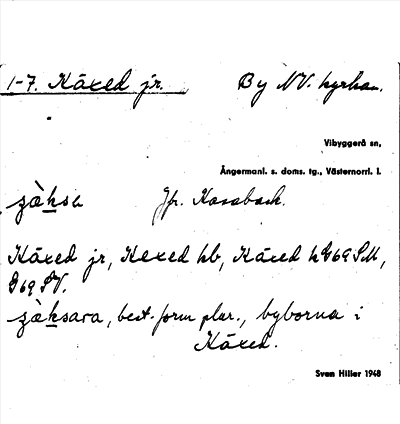 1-7. Käxed jr.
By NV. kyrkan.
Vibyggerå sn,
Ångermanl. s. doms. tg., Västernorrl. l.
Jfr. Kasabäck.
Käxed jr, Kexed hb, Käxed h G69 SM,
G69 SV.
best. form plur., byborna i
Käxed.
Sven Hiller 1948